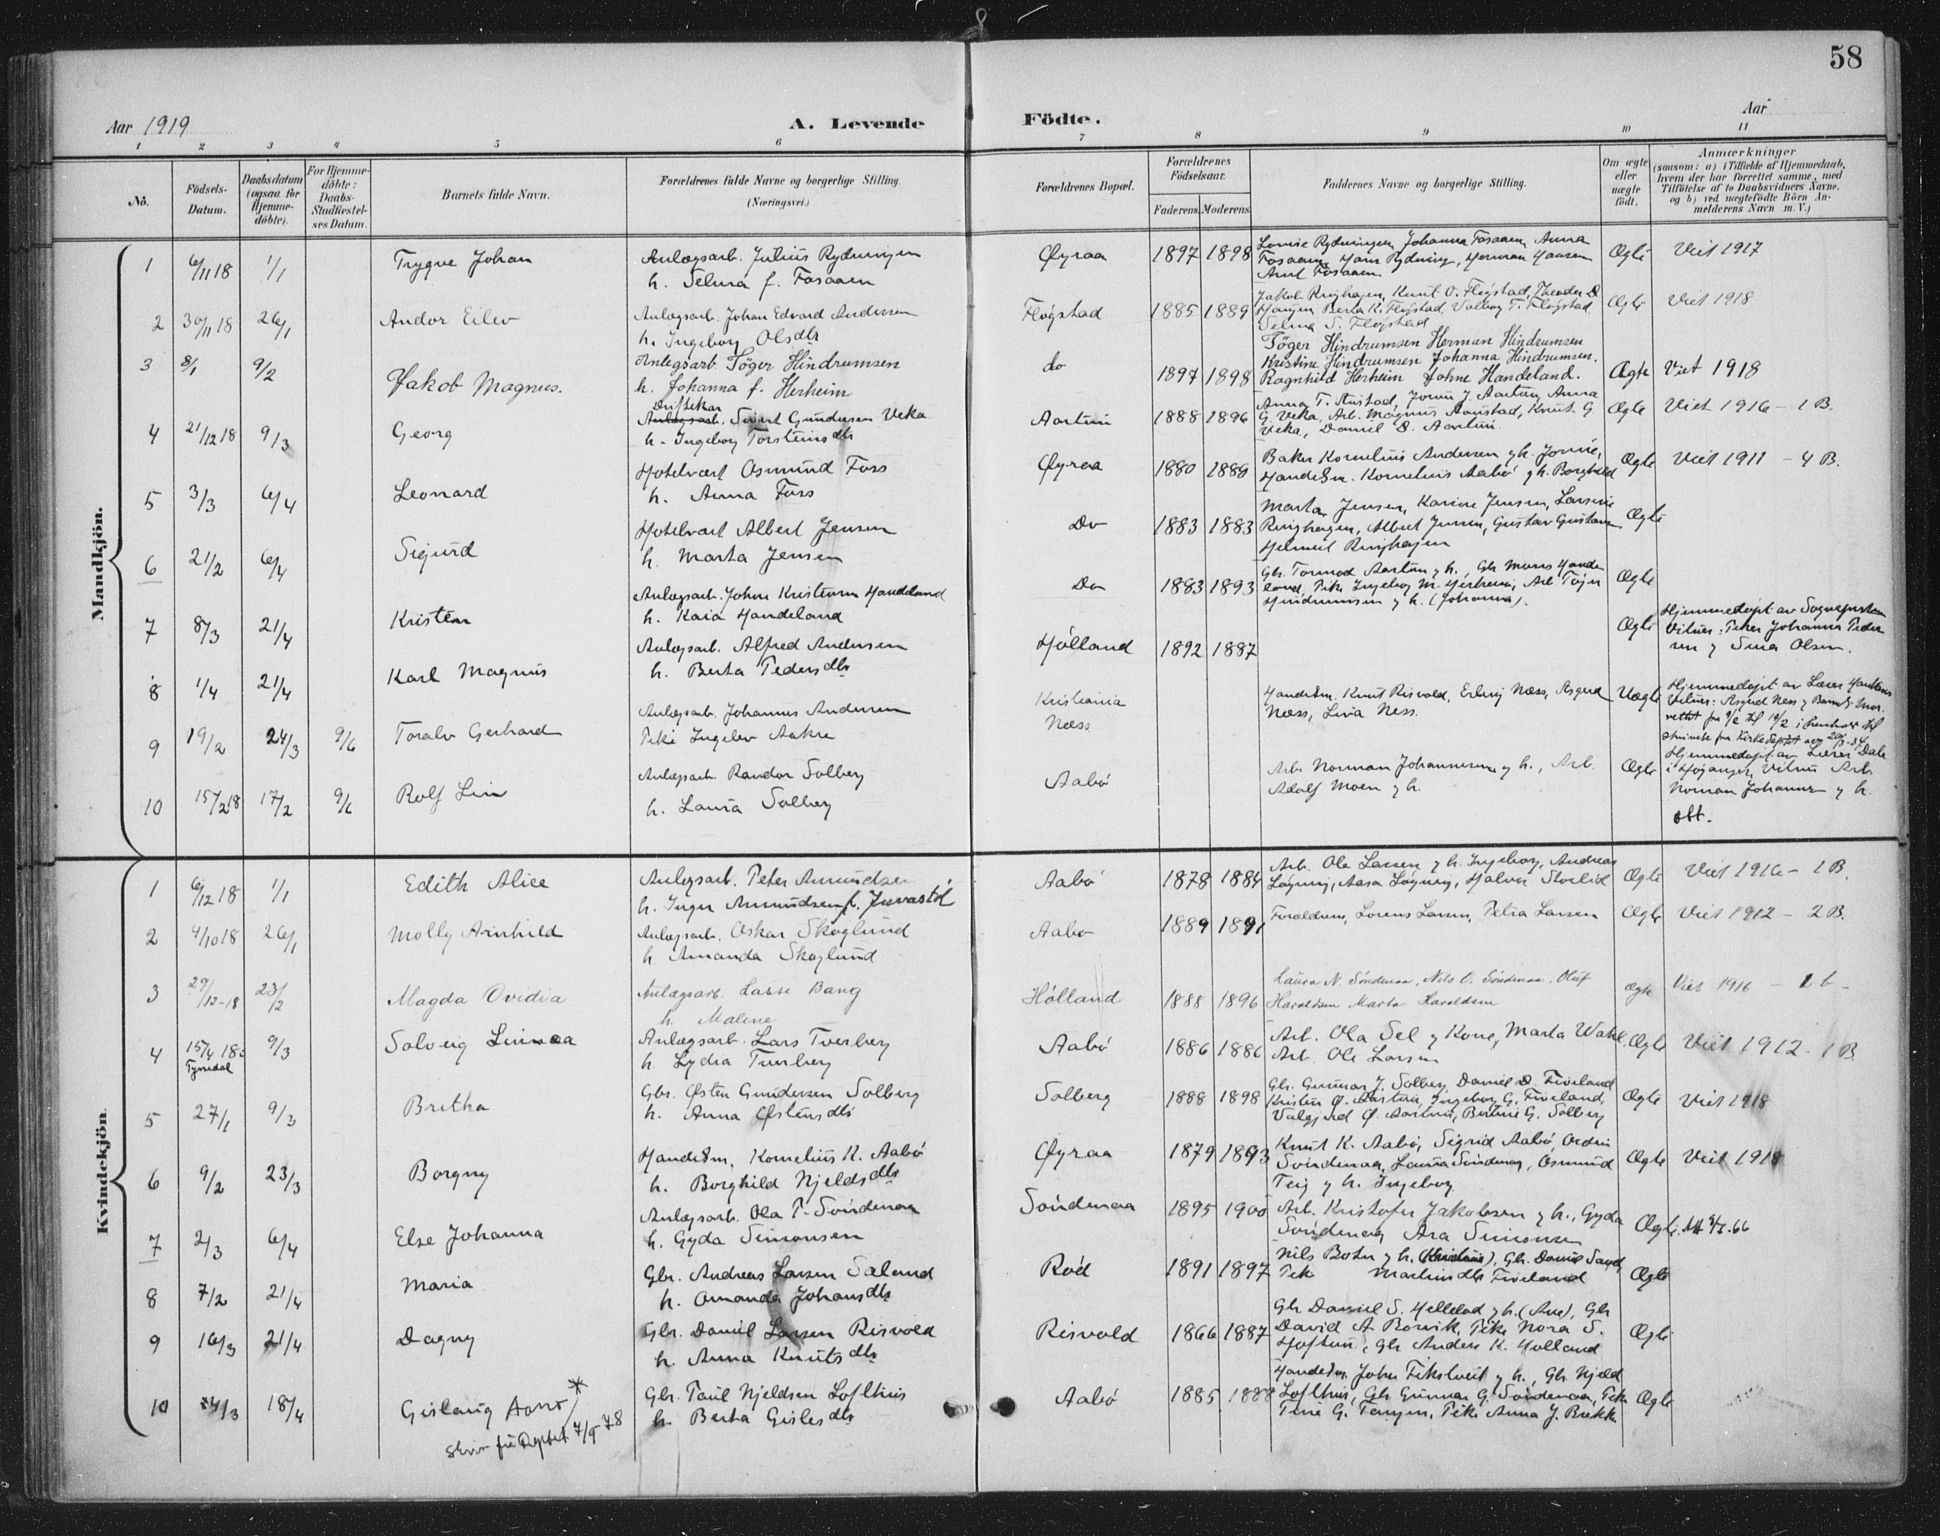 58
Aar 1919
A. Levende
Födte.
Aar
1 2 3 4 5 6 7 8 9 10 11
No.
Födsels-Datum.
Daabsdatum (ogsaa for Hjemme-döbte).
For Hjemme-döbte: Daabs-Stadfæstel-ses Datum.
Barnets fulde Navn.
Forældrenes fulde Navne og borgerlige Stilling.
(Næringsvei.)
Forældrenes Bopæl.
Forældrenes Födselsaar.
Faderens. Moderens.
Faddernes Navne og borgerlige Stilling.
Om ægte eller uægte födt.
Anmærkninger
(saasom: a) i Tilfælde af Hjemmedaab,
hvem der har forrettet samme, med
Tilföielse af to Daabsvidners Navne,
og b) ved uægtefödte Börn An-
melderens Navn m. V.)
Mandkjön.
1 6/11 18 1/1 Trygve Johan
Anlægsarb. Julius Rydningen
h. Selma f. Fosaaen
Øyraa 1897 1898
Lovise Rydningen, Johanna Fosaaen, Anna
Fosaaen, Hans Rydning, Herman Hansen
Arnt Fosaaen
Ægte Viet 1917
2 30/11 18 26/1 Andor Eilev
Anlægsarb. Johan Edvard Andersen
h. Ingeborg Olsdtr
Fløgstad 1885 1889
Jakob Ringhagen, Knut O. Fløgstad, Theodor D
Haugen, Berta K. Fløgstad, Valborg T. Fløgstad
Selma S. Fløgstad
Ægte Viet 1918
3 8/1 9/2 Jakob Magnus.
Anlegsarb Töger Hindrumsen
h. Johanna f. Herheim
do 1897 1898
Töger Hindrumsen Herman Hindrumsen
Kristine Hindrumsen Johanna Hindrumsen.
Ragnhild Herheim Johne Handeland.
Ægte Viet 1918
4 21/12 18 9/3 Georg
Driftskar
Anlægsarb. Sivert Gundersen Veka
h. Ingeborg Torsteinsdtr
Aartun 1888 1896
Anna T. Austad, Jorun J. Aartun, Anna
G. Veka, Arb. Magnus Aanstad, Knut G
Veka, Daniel D. Aartun.
Ægte Viet 1916 - 1 B.
5 3/3 6/4 Leonard
Hotelvært Osmund Foss
h. Anna Foss
Øyraa 1880 1889
Baker Kornelius Andersen og h. Jonne,
Handelsm. Kornelius Aabö og h. Borghild
Ægte Viet 1911 - 4 B.
6 21/2 6/4 Sigurd
Hotelvært Albert Jensen
h. Marta Jensen
Do 1883 1883
Marta Jensen, Karine Jensen, Larsine
Ringhagen, Albert Jensen, Gustav Gustavsen
Helmert Ringhagen
Ægte
7 8/3 21/4 Kristen
Anlægsarb. Johne Kristensen Handeland
h. Kaia Handeland
Do 1883 1893
Gbr. Tormod Aartun og h., Gbr Mons Hande
land, Pike Ingeborg M. Herheim, Arb Töger
Hindrumsen og h. (Johanna).
Ægte
8 1/4 21/4 Karl Magnus
Anlægsarb. Alfred Andersen
h. Berta Pedersdtr
Hölland 1892 1887
Ægte
Hjemmedøpt av Sognepresten
Vitner: Piker Johanna Peder
sen og Sina Olsen.
9 19/2 24/3 9/6 Toralv Gerhard
Anlægsarb. Johannes Andersen
Pike Ingelev Aakre
Kristiania
Næss
Handelsm. Knut Risvold, Erling Næss, Asgerd
Næss, Livia Ness.
Uægte
Hjemmedøpt av Lærer
Vitner: Asgerd Ness
10 15/2 18 17/2 9/6 Rolf Lin
Anlægsarb. Randor Solberg
h. Laura Solberg
Aabö
Arb. Norman Johannesen og h., Arb.
Adolf Moen og h.
Ægte
Hjemmedøpt av Lærer Dale
i Høyanger, Vitner Arb.
Norman Johannes og h.
att.
Kvindekjön.
1 6/12 18 1/1 Edith Alice
Anlægsarb. Peter Amundsen
h. Inger Amundsen f. Juvastöl
Aabö 1878 1884
Arb. Ole Larsen og h. Ingeborg, Andreas
Løgning, Aasa Løgning, Halvor Storlid
Ægte Viet 1916 - 1 B.
2 4/10 18 26/1 Molly Arnhild
Anlægsarb. Oskar Skoglund
h. Amanda Skoglund
Aabö 1889 1891
Forældrene, Lorens Larsen, Petra Larsen
Ægte Viet 1912 - 2 B.
3 29/12-18 23/2 Magda Ovidia
Anlægsarb. Lasse Bang
h. Malene
Hölland 1888 1896
Laura N. Söndenaa, Nils O. Söndenaa, Oluf
Haraldsen Marta Haraldsen
ægte Viet 1916 - 1 b -
4 15/4 18 9/3 Solveig Linnea
Tyssedal
Anlægsarb. Lars Tverberg
h. Lydia Tverberg
Aabö 1886 1886
Arb. Ola Sel og Kone, Marta Wahl.
Art. Ole Larsen
Ægte Viet 1912. 1 B
5 27/1 9/3 Bretha
Gbr. Østen Gundersen Solberg
h. Anna Østensdtr
Solberg 1888 1898
Gbr. Gunnar J. Solberg, Daniel D. Fiveland
Kristen Ø. Aartun, Ingeborg G. Fiveland,
Valgjerd Ø. Aartun, Bertine G. Solberg
Ægte Viet 1918
6 9/2 23/3 Borgny
Handelsm. Kornelius K. Aabö
h. Borghild Njeldsdtr
Øyraa 1879 1893
Knut K. Aabö, Sigrid Aabö, Ordin
Söndenaa, Laura Söndenaa, Osmund
Teig og h. Ingeborg
Ægte Viet 1918
7 2/3 6/4 Else Johanna
Anlægsarb. Ola T. Söndenaa
h. Gyda Simonsen
Söndenaa 1895 1900
Arb. Kristofer Jakobsen og h., Gyda
Söndenaa, Ara Simonsen
Ægte
8 7/2 21/4 Maria
Gbr. Andreas Larsen Saland
h. Amanda Johansdtr
Röd 1891 1897
Nils Boten og h. (Kristine), Gbr. Daniel Sand,
Pike Martinsdtr Fiveland
Ægte
9 16/3 21/4 Dagny
Gbr. Daniel Larsen Risvold
h. Anna Knutsdtr
Risvold 1866 1887
Gbr Daniel S. Hellelad og h. (Ane), Gbr
David A Rörvik, Pike Nora S.
Hoftun, Gbr Anders K. Holland
Ægte
10 24/3 18/4 Gislaug Aano *
Skriv fra Dept 7/9-78
Gbr. Paul Njeldsen Lofthus
h. Berta Gislesdtr
Aabö 1885 1888
Handelsm John Fikstveit og h., Gbr Njeld
Lofthus, Gbr Gunnar G. Söndenaa, Pike
Tine G. Tangen, Pike Anna J. Brekke
Ægte